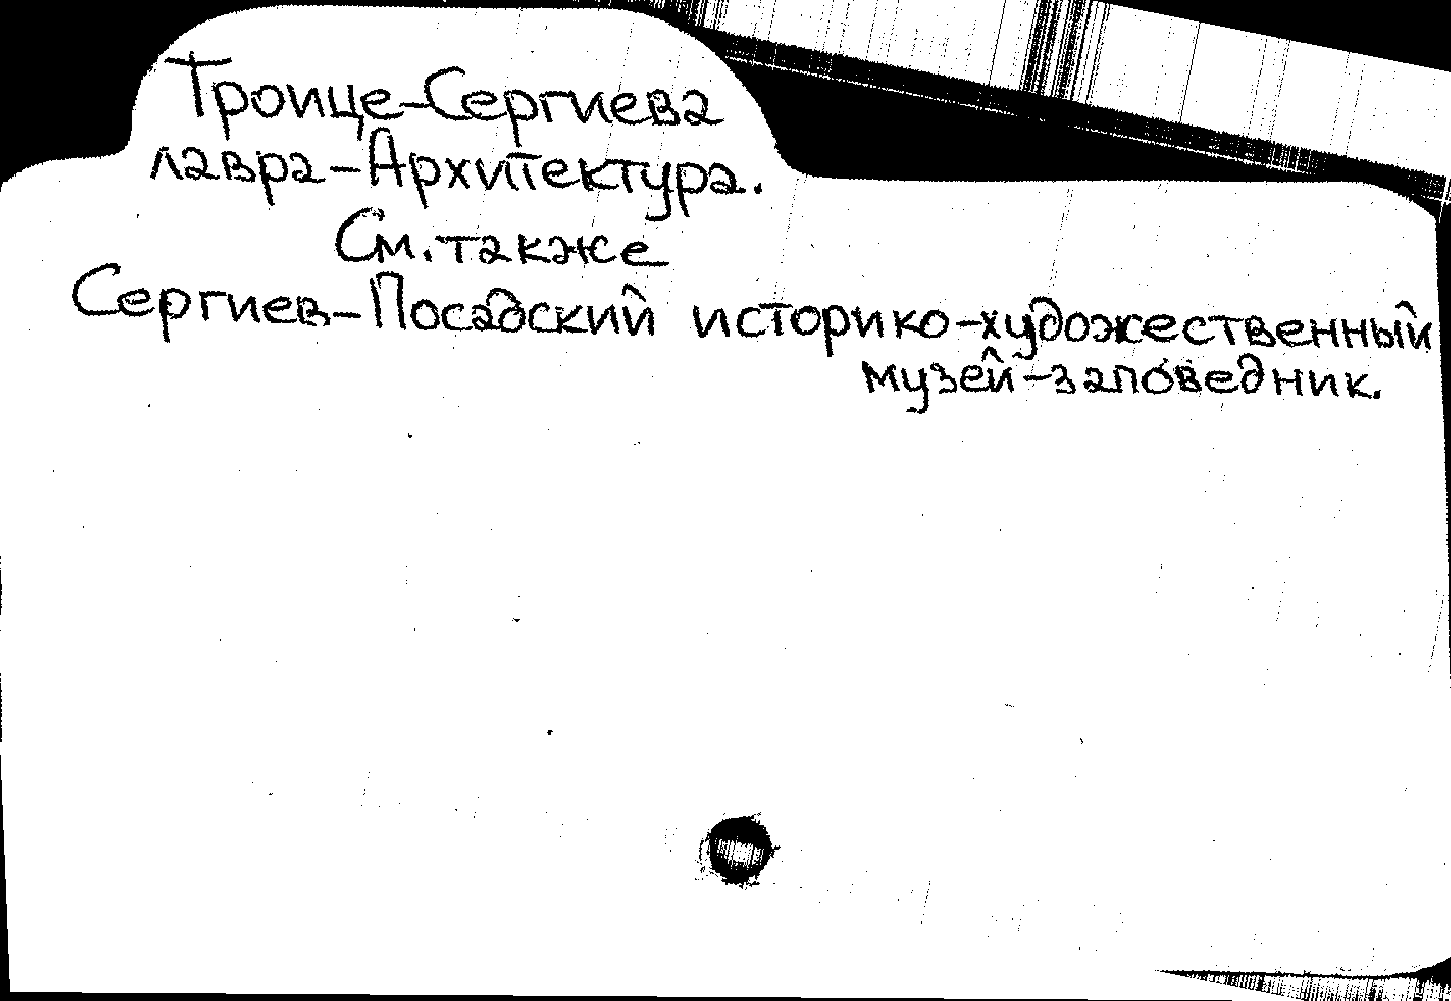 Троице-Сергиева
лавра-Архитектура.
См. также
Сергиев-Посадский историко-художественный
музей-заповедник.